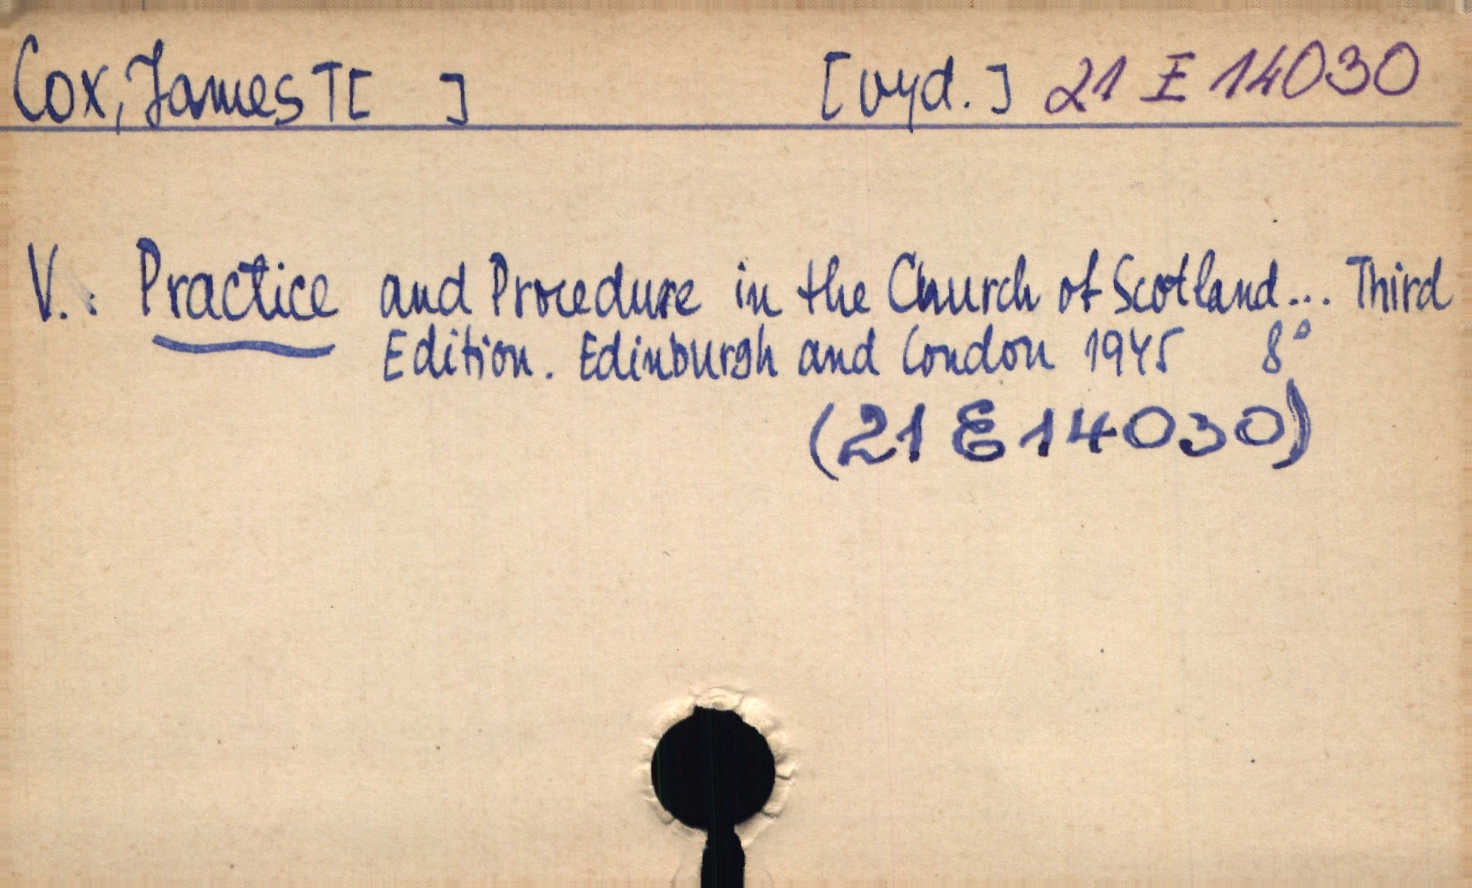 Cox, James T[ ] [vyd.] 21 E 14030
V.: Practice and Procedure in the Church of Scotland... Third
Edition. Edinburgh and London 1945 8°
(21 E 14030)